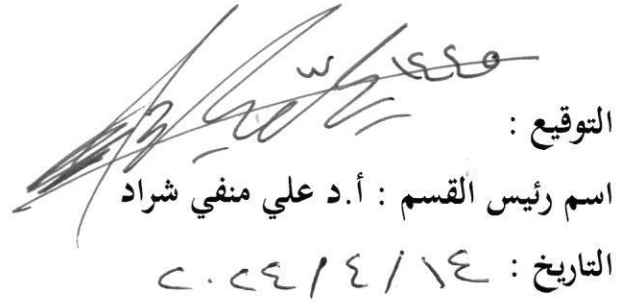 التوقيع :
اسم رئيس القسم : أ.د علي منفي شراد
التاريخ : ١٤ / ٤ / ٢٠٢٤